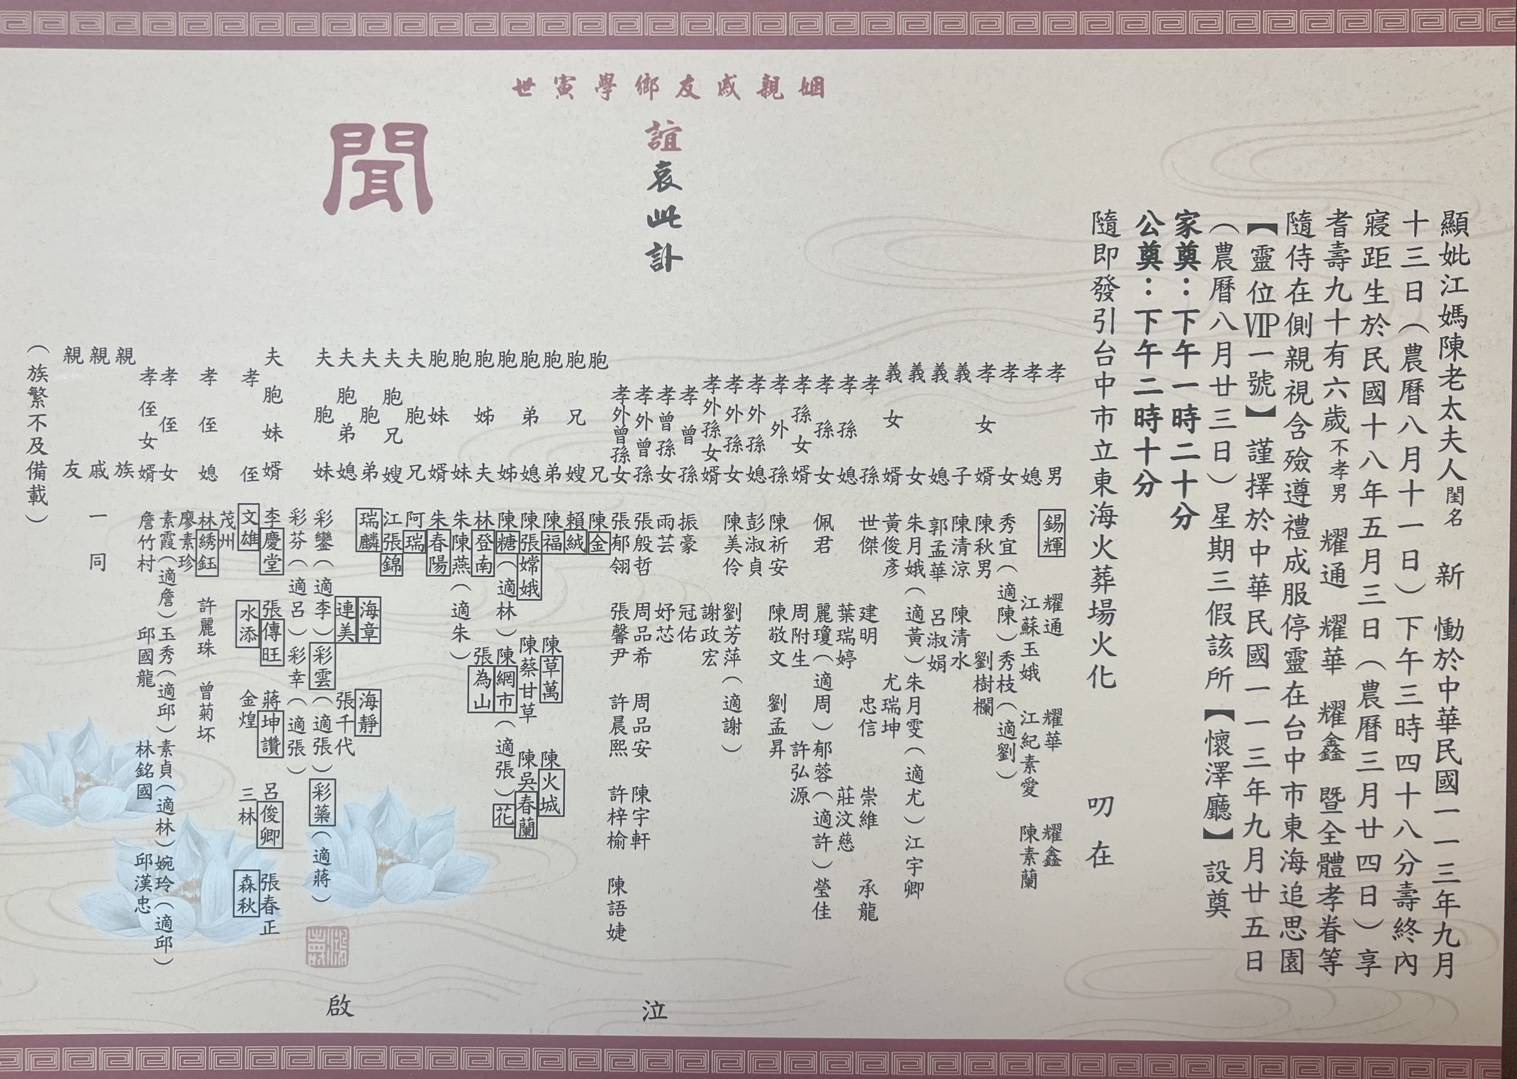 顯妣江媽陳老太夫人閨名 新 慟於中華民國一一三年九月
十三日（農曆八月十一日）下午三時四十八分壽終內
寢距生於民國十八年五月三日（農曆三月廿四日）享
耆壽九十有六歲不孝男 耀通 耀華 耀鑫 暨全體孝眷等
隨侍在側親視含殮遵禮成服停靈在台中市東海追思園
【靈位VIP一號】謹擇於中華民國一一三年九月廿五日
（農曆八月廿三日）星期三假該所【懷澤廳】設奠
家奠：下午一時二十分
公奠：下午二時十分
隨即發引台中市立東海火葬場火化 叨在
姻親戚友鄉學寅世
誼哀此訃
聞
孝男 錫輝 耀通 耀華 耀鑫
孝媳 江蘇玉娥 江紀素愛 陳素蘭
孝女 秀宜（適陳）秀枝（適劉）
孝女婿 陳秋男 劉樹欄
義子 陳清涼 陳清水
義媳 郭孟華 呂淑娟
義女 朱月娥（適黃）朱月雯（適尤）江宇卿
義女婿 黃俊彥 尤瑞坤
孝孫 世傑 建明 忠信 崇維 承龍
孝孫媳 葉瑞婷 莊汶慈
孝孫女 佩君 麗瓊（適周）郁蓉（適許）瑩佳
孝孫女婿 周附生 許弘源
孝外孫 陳祈安 陳敬文 劉孟昇
孝外孫媳 彭淑貞
孝外孫女 陳美伶 劉芳萍（適謝）
孝外孫女婿 謝政宏
孝曾孫 振豪 冠佑
孝曾孫女 雨芸 妤芯
孝外曾孫 張殷哲 周品希 周品安 陳宇軒
孝外曾孫女 張郁翎 張馨尹 許晨熙 許梓榆 陳語婕
胞兄 陳金
胞兄嫂 賴絨
胞弟 陳福 陳草萬 陳火城
胞弟媳 陳張嫦娥 陳蔡甘草 陳吳春蘭
胞姊 陳糖（適林）陳網市（適張）花
胞姊夫 林登南 張為山
胞妹 朱陳燕（適朱）
胞妹婿 朱春陽
夫胞兄 阿瑞
夫胞兄嫂 江張錦
夫胞弟 瑞麟 海章 海靜
夫胞弟媳 連美 張千代
夫胞妹 彩鑾（適李）彩雲（適張）彩蘂（適蔣）
彩芬（適呂）彩幸（適張）
夫胞妹婿 李慶堂 張傳旺 蔣坤讚 呂俊卿 張春正
孝侄 文雄 水添 金煌 三林 森秋
茂州
孝侄媳 林綉鈺 許麗珠 曾菊坏
廖素珍
孝侄女 素霞（適詹）玉秀（適邱）素貞（適林）婉玲（適邱）
孝侄女婿 詹竹村 邱國龍 林銘國 邱漢忠
親族
親戚 一同
親友
（族繁不及備載）
泣
啟